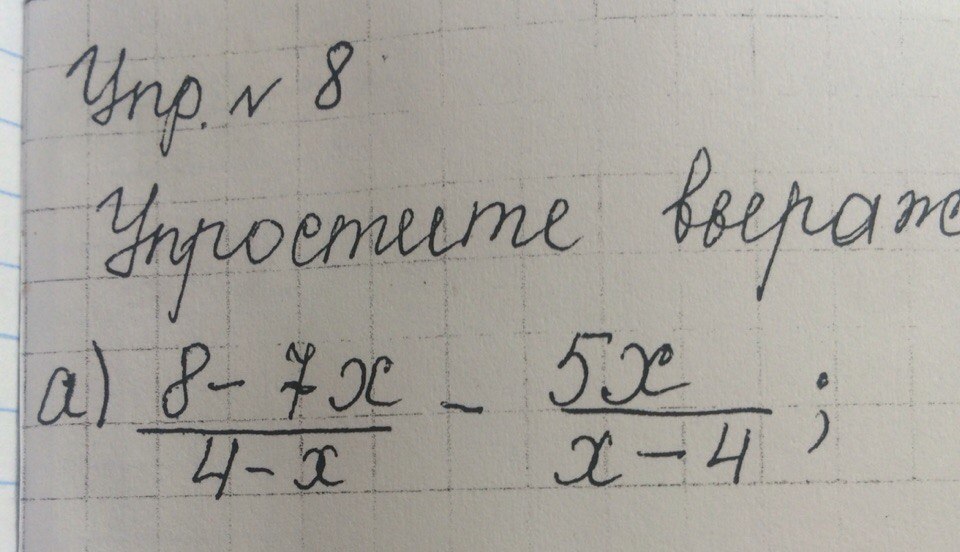 Упр. № 8
Упростите выраж
а) (8 - 7x)/(4 - x) - 5x/(x - 4);